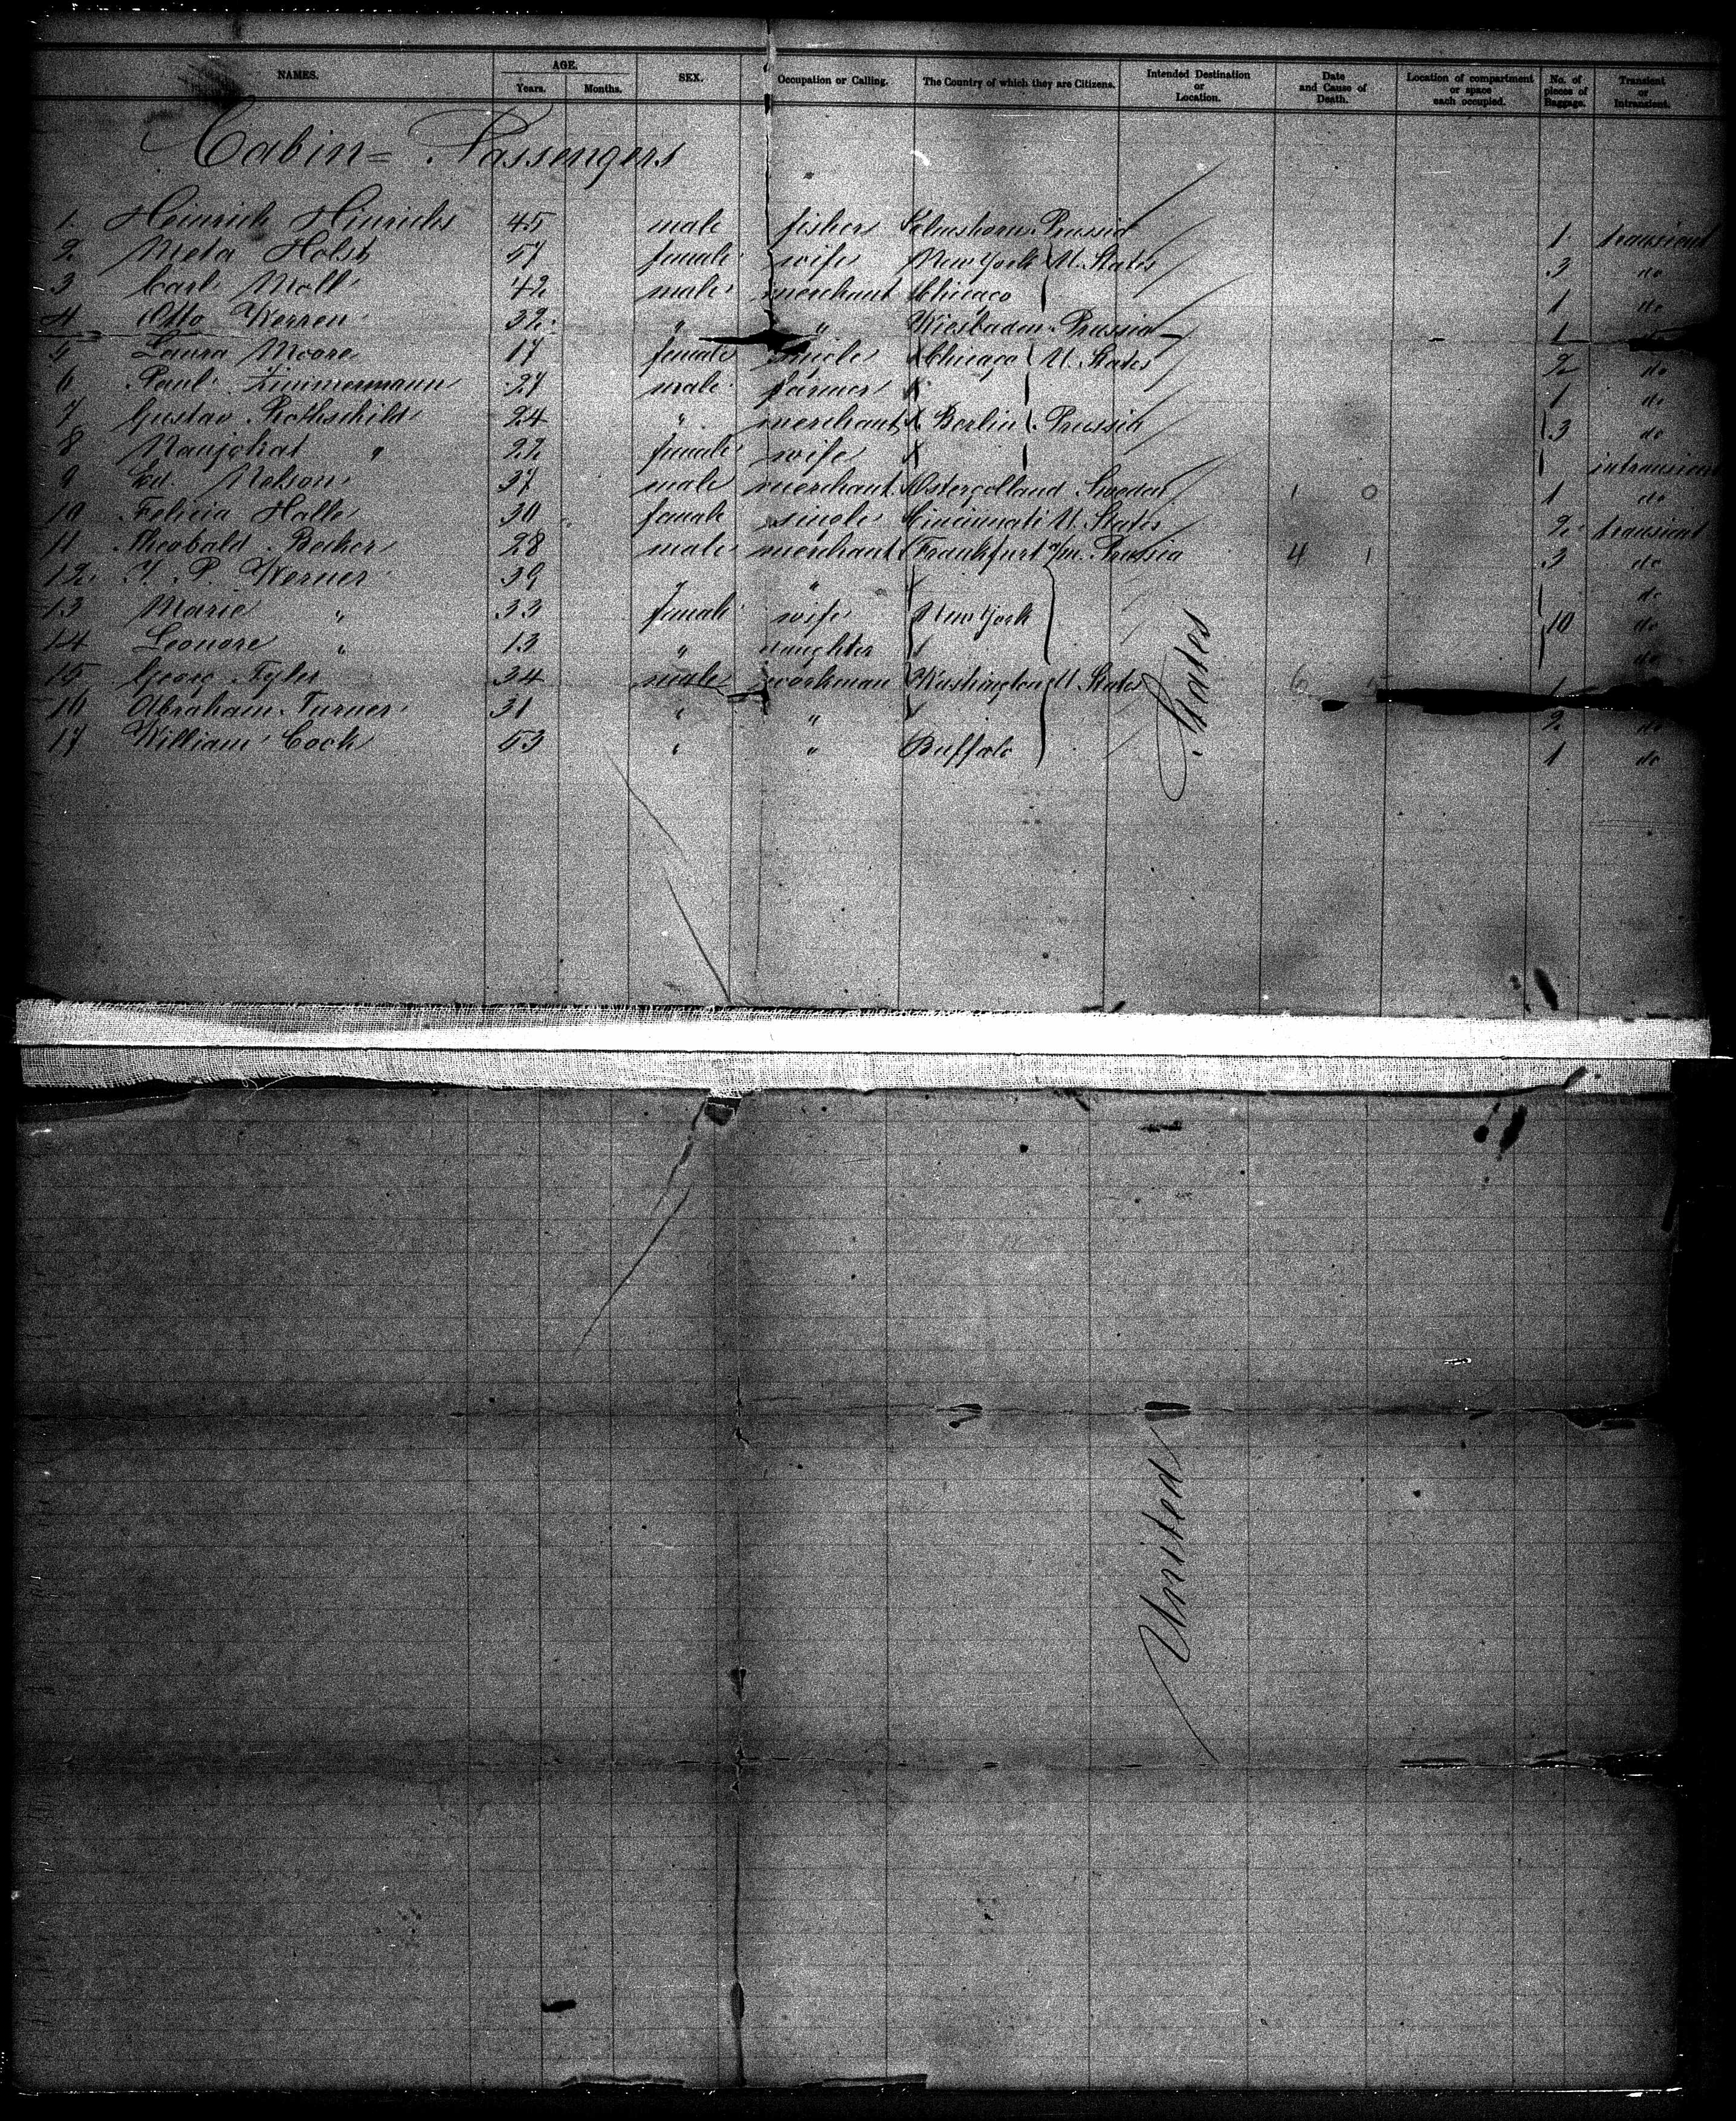 NAMES. AGE. Years. Months. SEX. Occupation or Calling. The Country of which they are Citizens. Intended Destination or Location. Date and Cause of Death. Location of compartment or space each occupied. No. of pieces of Baggage. Transient or Intransient.
Cabin= Passengers
1. Heinrich Hinrichs 45 male fisher Prussia 1 transient
2. Meta Holst 57 female wife New York U. States 3 do
3 Carl Moll 42 male merchant Chicago 1 do
4 Otto Werren 32 " " Wiesbaden Prussia 1 do
5 Laura Moore 17 female single Chicago U. States 2 do
6 Paul Zimmermann 27 male farmer 1 do
7 Gustav Rothschild 24 " merchant Berlin Prussia 3 do
8 " 22 female wife intransient
9 Ed. Nelson 37 male merchant Ostergolland Sweden 1 0 1 do
10 Felicia Halle 30 female single Cincinnati U. States 2 transient
11 Theobald Becker 28 male merchant Frankfurt a/m. Prussia 4 1 3 do
12. Werner 39 " " do
13 Marie " 33 female wife New York 10 do
14 Leonore " 13 " daughter do
15 Georg Tyler 34 male workman Washington U. States 6 1
16 Abraham Turner 31 " " 2 do
17 William Cook 53 " " Buffalo 1 do
United States